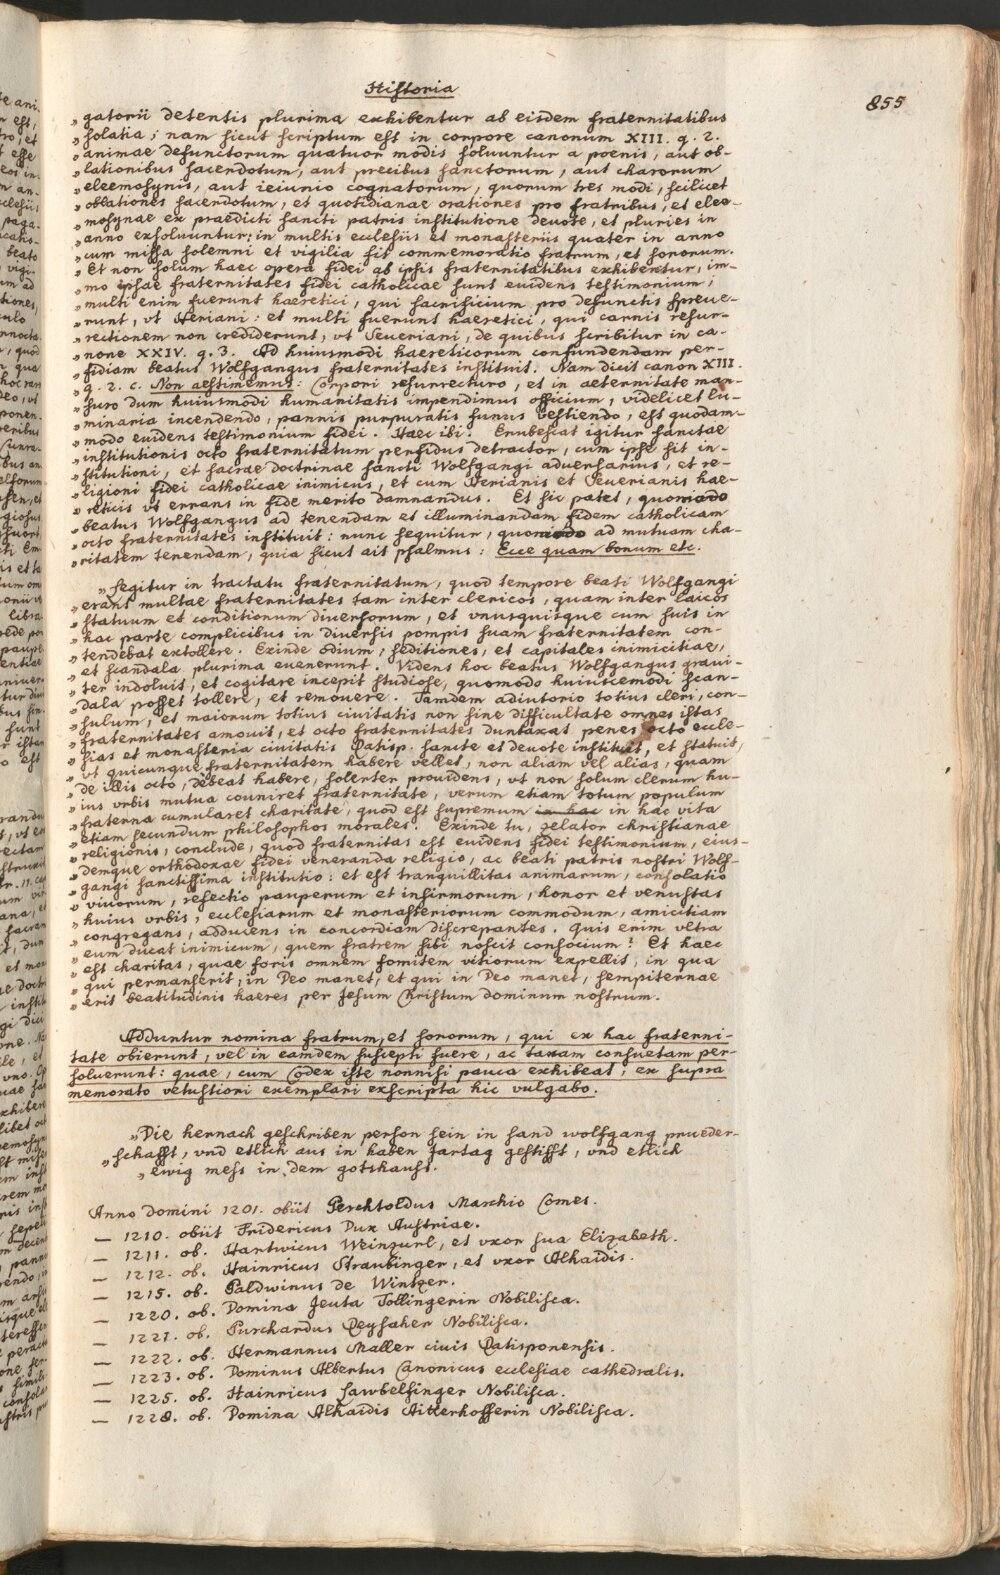 Historia
855
„gatorii detentis plurima exhibentur ab eisdem fraternitatibus
„solatia; nam sicut scriptum est in corpore canonum XIII. q. 2.
„animae defunctorum quatuor modis soluuntur a poenis, aut ob-
„lationibus sacerdotum, aut precibus sanctorum, aut charorum
„eleemosynis, aut ieiunio cognatorum, quorum tres modi, scilicet
„oblationes sacerdotum, et quotidianae orationes pro fratribus, et elee-
„mosynae ex praedicti sancti patris institutione deuote, et pluries in
„anno exsoluuntur: in multis ecclesiis et monasteriis quater in anno
„cum missa solemni et vigilia fit commemoratio fratrum, et sororum.
„Et non solum haec opera fidei ab ipsis fraternitatibus exhibentur, im-
„mo ipsae fraternitates fidei catholicae sunt euidens testimonium;
„multi enim fuerunt haeretici, qui sacrificium pro defunctis spreue-
„runt, vt Heriani: et multi fuerunt haeretici, qui carnis resur-
„rectionem non crediderunt, vt Seueriani, de quibus scribitur in ca-
„none XXIV. q. 3. Ad huiusmodi haereticorum confundendam per-
„fidiam beatus Wolfgangus fraternitates instituit. Nam dicit canon XIII.
„q. 2. c. Non aestimemus: Corpori resurrecturo, et in aeternitate man-
„suro dum huiusmodi humanitatis impendimus officium, videlicet lu-
„minaria incendendo, pannis purpuratis funus vestiendo, est quodam-
„modo euidens testimonium fidei. Haec ibi. Erubescat igitur sanctae
„institutionis octo fraternitatum perfidus detractor, cum ipse sit in-
„stitutioni, et sacrae doctrinae sancti Wolfgangi aduersarius, et re-
„ligioni fidei catholicae inimicus, et cum Herianis et Seuerianis hae-
„reticis vt errans in fide merito damnandus. Et sic patet, quomodo
„beatus Wolfgangus ad tenendam et illuminandam fidem catholicam
„octo fraternitates instituit: nunc sequitur, quomodo ad mutuam cha-
„ritatem tenendam, quia sicut ait psalmus: Ecce quam bonum etc.
„Legitur in tractatu fraternitatum, quod tempore beati Wolfgangi
„erant multae fraternitates tam inter clericos, quam inter laicos
„statuum et conditionum diuersorum, et vnusquisque cum suis in
„hac parte complicibus in diuersis pompis suam fraternitatem con-
„tendebat extollere. Exinde odium, seditiones, et capitales inimicitiae,
„et scandala plurima euenerunt. Videns hoc beatus Wolfgangus graui-
„ter indoluit, et cogitare incepit studiose, quomodo huiuscemodi scan-
„dala posset tollere, et remouere. Tandem adiutorio totius cleri, con-
„sulum, et maiorum totius ciuitatis non sine difficultate omnes istas
„fraternitates amouit, et octo fraternitates duntaxat penes octo eccle-
„sias et monasteria ciuitatis Ratisp. sancte et deuote instituit, et statuit,
„vt quicunque fraternitatem habere vellet, non aliam vel alias, quam
„de illis octo, debeat habere, solerter prouidens, vt non solum clerum hu-
„ius vrbis mutua couniret fraternitate, verum etiam totum populum
„fraterna cumularet charitate, quod est supremum in hac in hac vita
„etiam secundum philosophos morales. Exinde tu, zelator christianae
„religionis, conclude, quod fraternitas est euidens fidei testimonium, eius-
„demque orthodoxae fidei veneranda religio, ac beati patris nostri Wolf-
„gangi sanctissima institutio: et est tranquillitas animarum, consolatio
„viuorum, refectio pauperum et infirmorum, honor et venustas
„huius vrbis, ecclesiarum et monasteriorum commodum, amicitiam
„congregans, adducens in concordiam discrepantes. Quis enim vltra
„eum ducat inimicum, quem fratrem sibi noscit consocium? Et haec
„est charitas, quae foris omnem fomitem vitiorum expellit, in qua
„qui permanserit, in Deo manet, et qui in Deo manet, sempiternae
„erit beatitudinis haeres per Jesum Christum dominum nostrum.
Adduntur nomina fratrum, et sororum, qui ex hac fraterni-
tate obierunt, vel in eamdem suscepti fuere, ac taxam consuetam per-
soluerunt: quae, cum Codex iste nonnisi pauca exhibeat, ex supra
memorato vetustiori exemplari exscripta hic vulgabo.
„Die hernach geschriben person sein in sand wolfgang prueder-
„schafft, vnd etlich aus in haben Jartag gestifft, vnd etlich
„ewig mess in dem gotshauss.
Anno Domini 1201. obiit Perchtoldus Marchio Comes.
— 1210. obiit Fridericus Dux Austriae.
— 1211. ob. Hartwicus Weinzurl, et vxor sua Elizabeth.
— 1212. ob. Hainricus Straubinger, et vxor Alhaidis.
— 1215. ob. Paldwinus de Wintzer.
— 1220. ob. Domina Jeuta Tollingerin Nobilista.
— 1221. ob. Purchardus Reysaher Nobilista.
— 1222. ob. Hermannus Maller ciuis Ratisponensis.
— 1223. ob. Dominus Albertus Canonicus ecclesiae cathedralis.
— 1225. ob. Hainricus Sawbelfinger Nobilista.
— 1228. ob. Domina Alhaidis Aitterhofferin Nobilista.